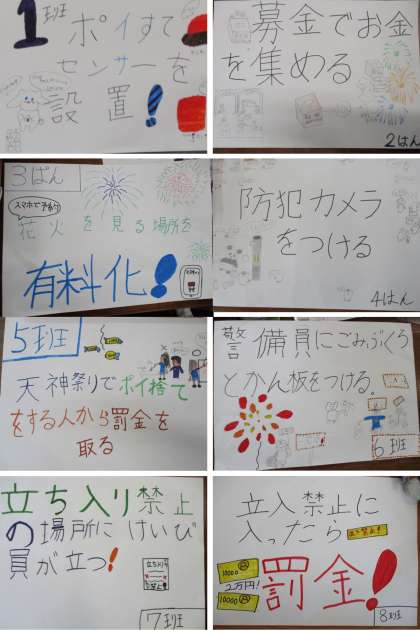 1班
ポイすて
センサーを
設置!
募金でお金
を集める
2はん
3ぱん
スマホで予約
花火を見る場所を
有料化!
防犯カメラ
をつける
4はん
5班
天神祭りでポイ捨て
をする人から罰金を
取る
警備員にごみぶくろ
とかん板をつける。
6班
立ち入り禁止
の場所にけいび
員が立つ!
立ち入り
禁止!
7班
立入禁止に
入ったら
10000
2万円!
10000
罰金!
8班